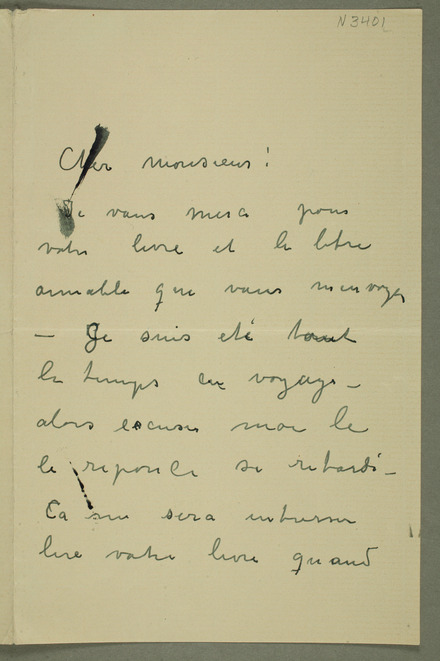 N 3401
Cher monsieur!
Je vous merci pour
votre livre et la lettre
aimable que vous m'envoyez
— Je suis eté tout
le temps en voyage —
alors excuses moi le
le reponce si retardé —
Ca me sera interesser
lire votre livre quand